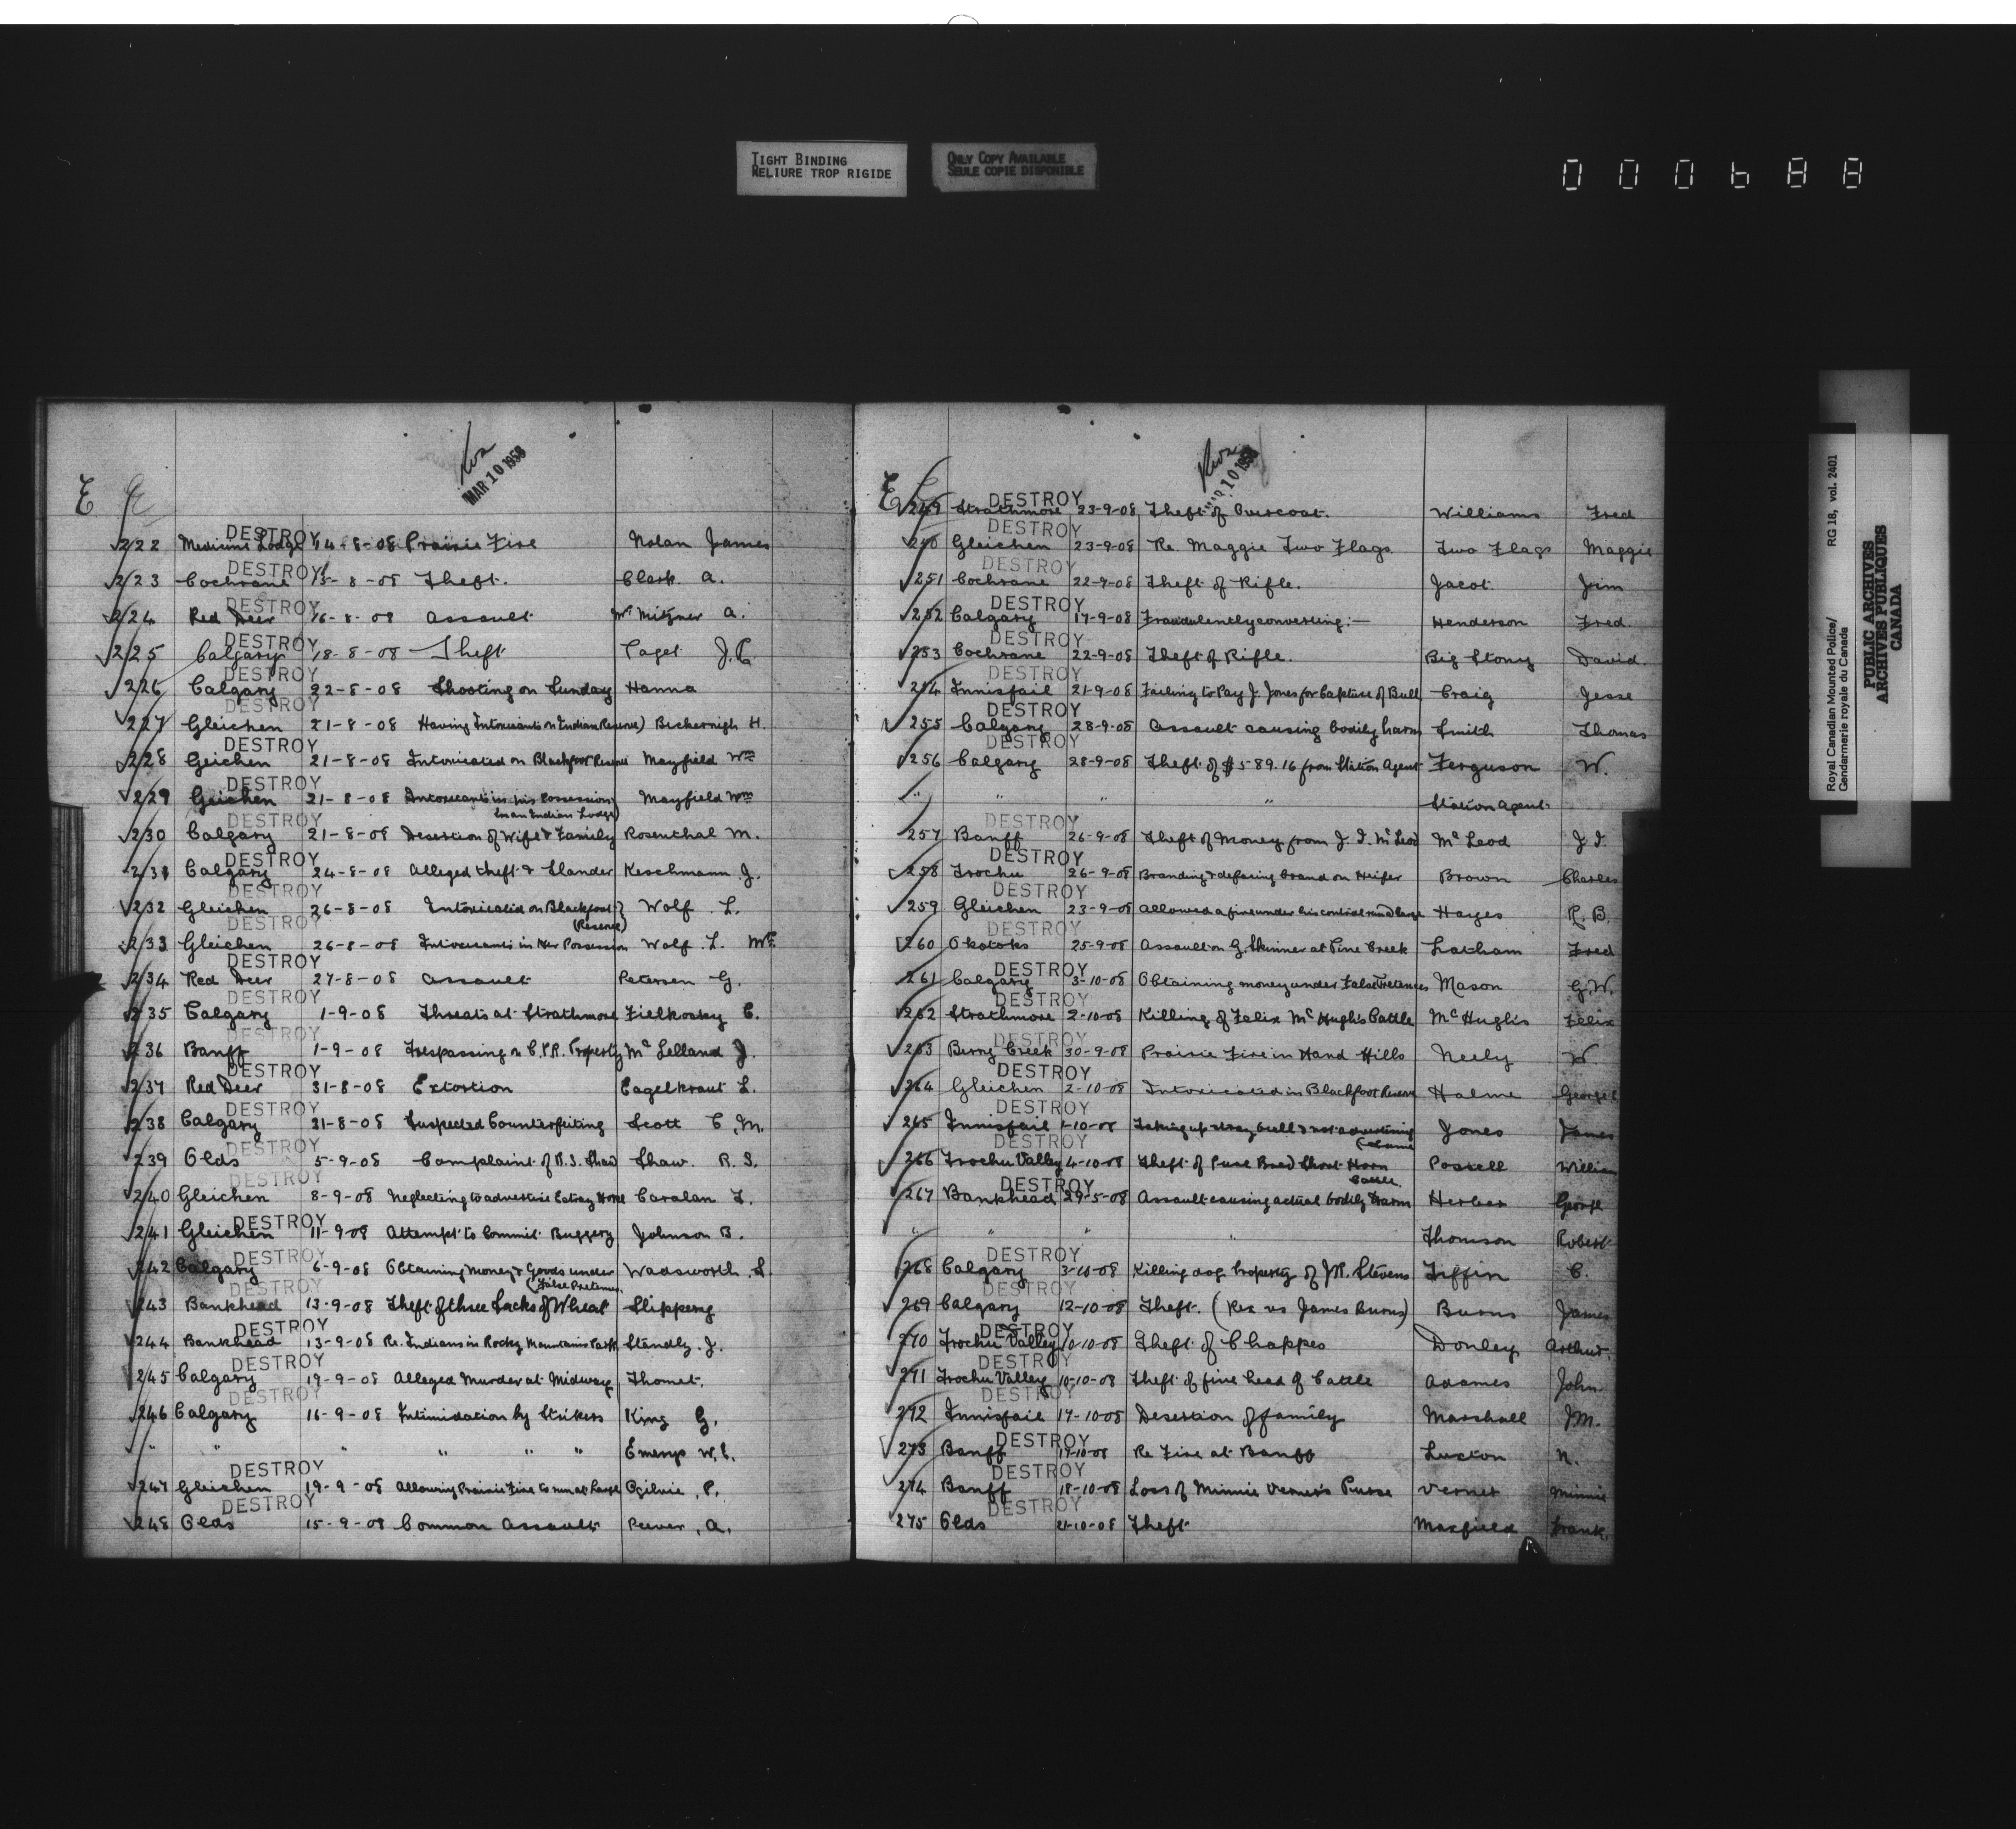 TIGHT BINDING
RELIURE TROP RIGIDE
ONLY COPY AVAILABLE
SEULE COPIE DISPONIBLE
000688
MAR 10 1958
E
DESTROY
222 Medicine Lodge 14-8-08 Prairie Fire Nolan James
DESTROY
223 Cochrane 15-8-08 Theft. Clark A.
DESTROY
224 Red Deer 16-8-08 Assault A.
DESTROY
225 Calgary 18-8-08 Theft J.C.
DESTROY
226 Calgary 22-8-08 Shooting on Sunday Hanna
DESTROY
227 Gleichen 21-8-08 Having Intoxicants on Indian Reserve) H.
DESTROY
228 Geichen 21-8-08 Intoxicated on Blackfoot Reserve Mayfield Wm
DESTROY
229 Geichen 21-8-08 Intoxicants in his Possession Mayfield Wm
in an Indian Lodge)
DESTROY
230 Calgary 21-8-08 Desertion of Wife & Family Rosenthal M.
DESTROY
231 Calgary 24-8-08 Alleged theft & Slander Keschmann J.
DESTROY
232 Gleichen 26-8-08 Intoxicated on Blackfoot} Wolf L.
(Reserve)
DESTROY
233 Gleichen 26-8-08 Intoxicants in Her Possession Wolf L. Mrs
DESTROY
234 Red Deer 27-8-08 Assault Petersen G.
DESTROY
235 Calgary 1-9-08 Threats at Strathmore Fielkosky C.
DESTROY
236 Banff 1-9-08 Trespassing on C.P.R. Property Mc Lelland J.
DESTROY
237 Red Deer 31-8-08 Extortion Eagelkraut L.
DESTROY
238 Calgary 31-8-08 Suspected Counterfeiting Scott C.M.
DESTROY
239 Olds 5-9-08 Complaint of R.S. Shaw Shaw. R.S.
DESTROY
240 Gleichen 8-9-08 Neglecting to advertise Estray Horse Caralan
DESTROY
241 Gleichen 11-9-08 Attempt to Commit Buggery Johnson B.
DESTROY
242 Calgary 6-9-08 Obtaining Money & Goods under Wadsworth S.
(False Pretences
DESTROY
243 Bankhead 13-9-08 Theft of three Sacks of Wheat Slippery
DESTROY
244 Bankhead 13-9-08 Re. Indians in Rocky Mountains Park Standly. J.
DESTROY
245 Calgary 19-9-08 Alleged Murder at Midway Thomet.
DESTROY
246 Calgary 16-9-08 Intimidation by Strikers King G.
" " " " " " Emery W.C.
DESTROY
247 Gleichen 19-9-08 Allowing Prairie Fire to run at Large Ogilvie, P.
DESTROY
248 Olds 15-9-08 Common Assault Peever, A.
10 1958
E
DESTROY
249 Strathmore 23-9-08 Theft of Overcoat. Williams Fred
DESTROY
250 Gleichen 23-9-08 Re. Maggie Two Flags Two Flags Maggie
DESTROY
251 Cochrane 22-9-08 Theft of Rifle. Jacot Jim
DESTROY
252 Calgary 17-9-08 Fraudulently converting:— Henderson Fred.
DESTROY
253 Cochrane 22-9-08 Theft of Rifle. Big Stony David.
DESTROY
254 Innisfail 21-9-08 Failing to Pay J. Jones for Capture of Bull Craig Jesse
DESTROY
255 Calgary 28-9-08 Assault causing bodily harm Smith Thomas
DESTROY
256 Calgary 28-9-08 Theft of $589.16 from Station Agent Ferguson W.
" " " " Station Agent
DESTROY
257 Banff 26-9-08 Theft of Money from J. I. McLeod McLeod J I.
DESTROY
258 Trochu 26-9-08 Branding & defacing brand on Heifer Brown Charles
DESTROY
259 Gleichen 23-9-08 Allowed a fire under his control run at large Hayes R.B.
DESTROY
260 Okotoks 25-9-08 Assault on G. Skinner at Pine Creek Latham Fred
DESTROY
261 Calgary 3-10-08 Obtaining money under False Pretences Mason G.W.
DESTROY
262 Strathmore 2-10-08 Killing of Felix McHugh's Cattle McHugh's Felix
DESTROY
263 Berry Creek 30-9-08 Prairie Fire in Hand Hills Neely W
DESTROY
264 Gleichen 2-10-08 Intoxicated in Blackfoot Reserve Halme George
DESTROY
265 Innisfail 1-10-08 Taking up stray bull & not advertising Jones James
(same
DESTROY
266 Trochu Valley 4-10-08 Theft of Pure Bred Short Horn Postell William
Cattle
DESTROY
267 Bankhead 29-5-08 Assault causing actual bodily harm Herber George
" " " " Thomson Robert
DESTROY
268 Calgary 3-10-08 Killing dog Property of J.R. Stevens Tiffin C.
DESTROY
269 Calgary 12-10-08 Theft. (Rex vs James Burns) Burns James
DESTROY
270 Trochu Valley 10-10-08 Theft of Chappes Donley Arthur.
DESTROY
271 Trochu Valley 10-10-08 Theft of five head of Cattle Adames John
DESTROY
272 Innisfail 17-10-08 Desertion of family Marshall J.M.
DESTROY
273 Banff 17-10-08 Re Fire at Banff Luxton N.
DESTROY
274 Banff 18-10-08 Loss of Minnie Vernet's Purse Vernet Minnie
DESTROY
275 Olds 21-10-08 Theft Maxfield Frank
Royal Canadian Mounted Police/ RG 18, vol. 2401
Gendarmerie royale du Canada
PUBLIC ARCHIVES
ARCHIVES PUBLIQUES
CANADA